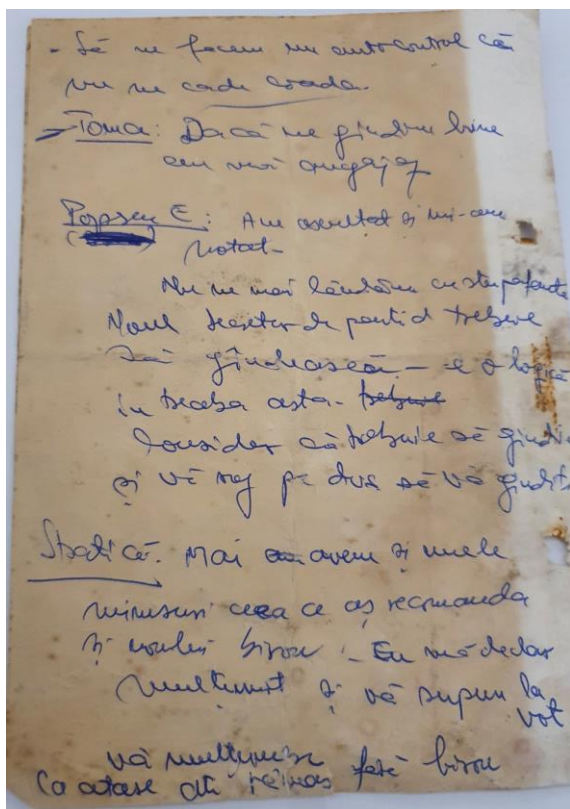 - Să ne facem un autocontrol că
nu ne cade coada.
- Toma: Dacă ne gîndim bine
am noi angajaț
Popescu E: Am ascultat și mi-am
notat-
Nu ne mai lăudăm cu
Noul secretar de partid trebuie
să gîndească - e o logică
in treaba asta - trebuie
Consider că trebuie să gîndi
și vă rog pe dvs să vă gîndiț
Statică. Mai avem și unele
minusuri ceea ce aș recomanda
și noului birou. Eu mă declar
mulțumit și vă supun la
vot
vă mulțumesc
Ca atare ați rămas fără birou